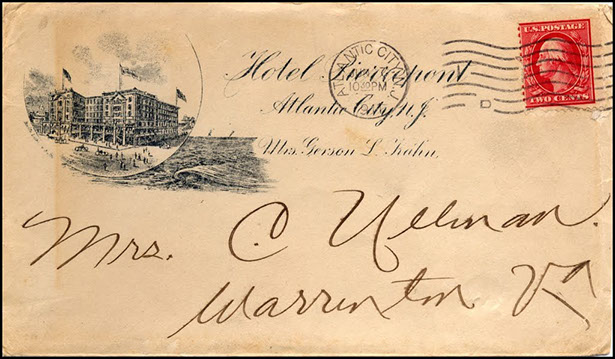 Hotel Pierrepont
Atlantic City, N.J.
Mrs. Gerson L. Kahn,
ATLANTIC CITY, N.J.
PM
U.S. POSTAGE
TWO CENTS
D
Mrs. C Ullman.
Warrenton Va